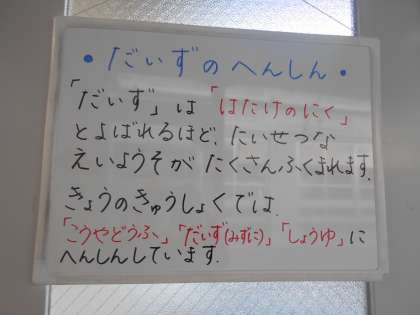 • だいずのへんしん •
「だいず」は「はたけのにく」
とよばれるほど、たいせつな
えいようそがたくさんふくまれます。
きょうのきゅうしょくでは、
「こうやどうふ」「だいず(みずに)」「しょうゆ」に
へんしんしています。